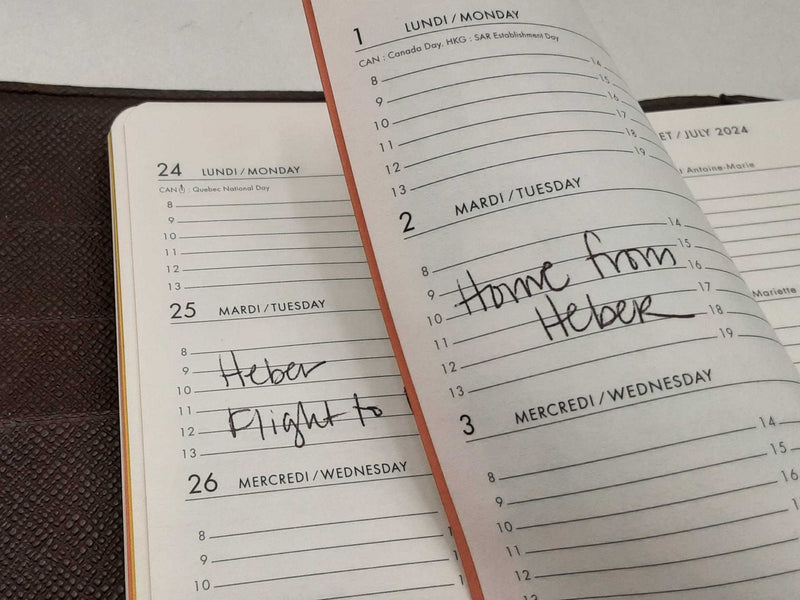 24 LUNDI/MONDAY
CAN : Quebec National Day
8
9
10
11
12
13
25 MARDI/TUESDAY
8
9 Heber
10
11
12 Flight to
13
26 MERCREDI/WEDNESDAY
8
9
10
1 LUNDI/MONDAY
CAN : Canada Day. HKG : SAR Establishment Day
8 14
9 15
10 16
11 17
12 18
13 19
2 MARDI/TUESDAY
8 14
9 Home from 15
10 16
11 Heber 17
12 18
13 19
3 MERCREDI/WEDNESDAY
8 14
9 15
10 16
11
12
ET / JULY 2024
Antoine-Marie
Mariette